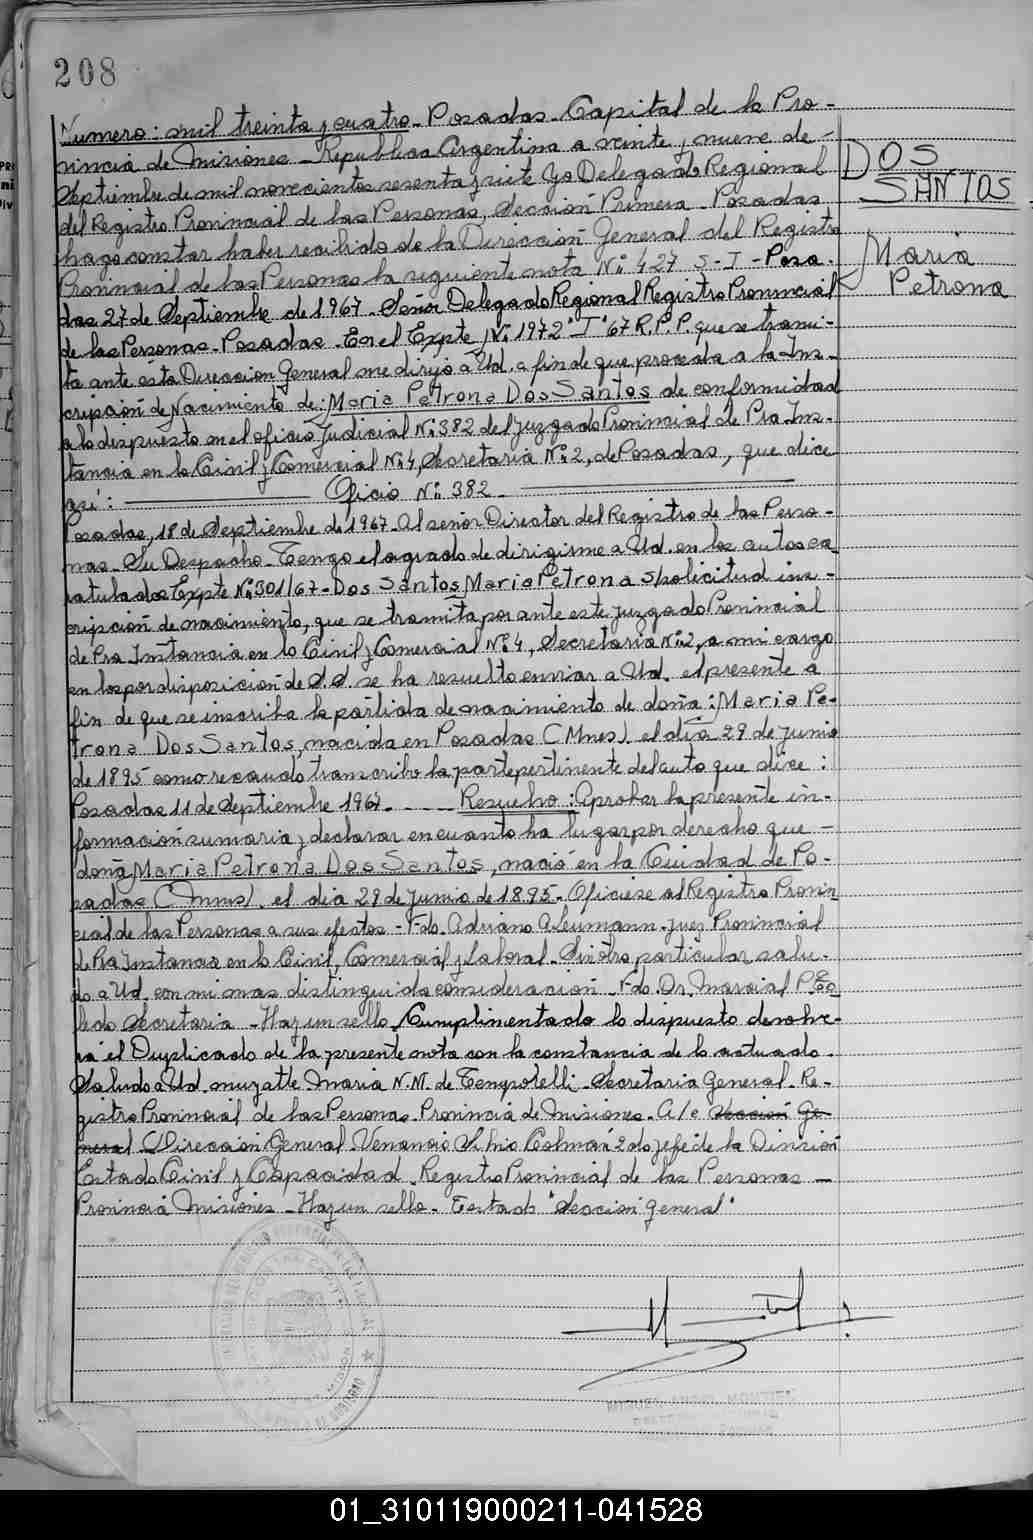 208
Numero: mil treinta y cuatro - Posadas - Capital de la Pro-
vincia de Misiones - Republica Argentina a veinte y nueve de
Septiembre de mil novecientos sesenta y siete Yo Delegado Regional
del Registro Provincial de las Personas, Sección Primera - Posadas
hago constar haber recibido de la Dirección General del Registro
Provincial de las Personas la siguiente nota Nº 427 S-I - Posa-
das 27 de Septiembre de 1967 - Señor Delegado Regional Registro Provincial
de las Personas - Posadas - En el Expte Nº 1972 "I" 67 R.P.P. que se trami-
ta ante esta Direccion General me dirijo a Ud. a fin de que proceda a la Ins-
cripción de Nacimiento de: Maria Petrona Dos Santos de conformidad
a lo dispuesto en el oficio Judicial Nº 382 del Juzgado Provincial de Pra Ins-
tancia en lo Civil y Comercial Nº 4, Secretaria Nº 2, de Posadas, que dice
así: Oficio Nº 382 -
Posadas, 18 de Septiembre de 1967 - Al señor Director del Registro de las Perso-
nas - Su Despacho - Tengo el agrado de dirigirme a Ud. en los autos ca-
ratulados Expte Nº 301/67 - Dos Santos Maria Petrona s/solicitud ins-
cripción de nacimiento, que se tramita por ante este Juzgado Provincial
de Pra Instancia en lo Civil y Comercial Nº 4, Secretaria Nº 2, a mi cargo
en los por disposición de S.S. se ha resuelto enviar a Ud. el presente a
fin de que se inscriba la partida de nacimiento de doña: Maria Pe-
trona Dos Santos, nacida en Posadas (Mnes). el día 29 de junio
de 1895 como recaudo transcribo la parte pertinente del auto que dice:
Posadas 11 de Septiembre 1967 - - - - Resuelvo: Aprobar la presente in-
formación sumaria y declarar en cuanto ha lugar por derecho que -
doña Maria Petrona Dos Santos, nació en la Ciudad de Po-
sadas (Mnes). el dia 29 de Junio de 1895 - Oficiese al Registro Provin-
cial de las Personas a sus efectos - Fdo. Adriano Aleumann - Juez Provincial
de Pra Instancia en lo Civil, Comercial y Laboral - Sin otro particular salu-
do a Ud. con mi mas distinguida consideración - Fdo. Dr. Marcial P. To-
ledo Secretaria - Hay un sello. Cumplimentado lo dispuesto devolve-
rá el Duplicado de la presente nota con la constancia de lo actuado.
Saludo a Ud. muy atte Maria N.M. de Secretaria General - Re-
gistro Provincial de las Personas - Provincia de Misiones - A/c Sección Ge-
neral C/Direccion General Venancio Silvio Colman 2do Jefe de la División
Estado Civil y Capacidad - Registro Provincial de las Personas -
Provincia Misiones - Hay un sello - Testado "Sección General"
DOS
SANTOS
Maria
Petrona
MIGUEL ANGEL MONTIEL
01_310119000211-041528